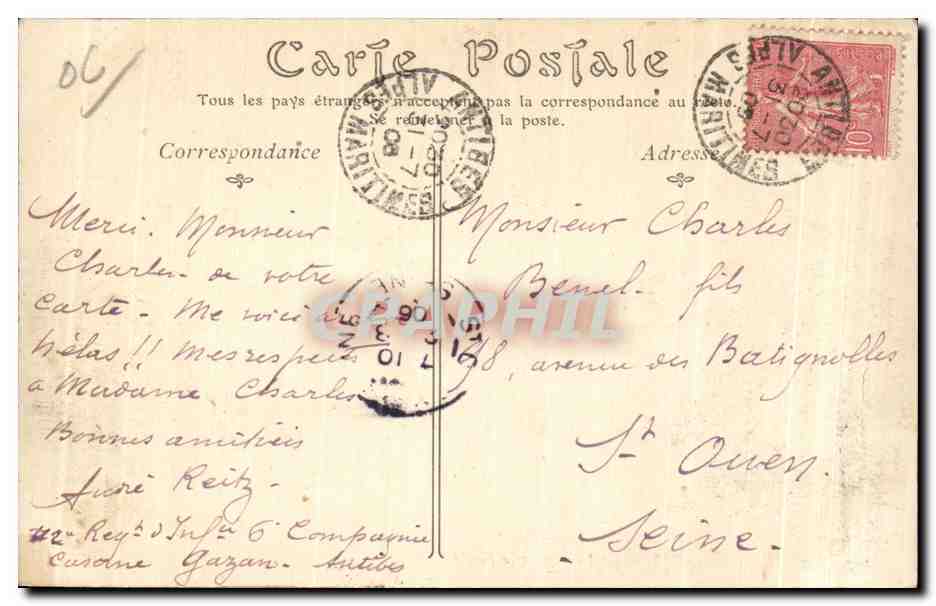 06
Carte Postale
Tous les pays étrangers n'acceptent pas la correspondance au recto
se renseigner à la poste.
Correspondance
Adresse
ANTIBES
ALPES MARITIMES
ANTIBES
ALPES MARITIMES
10
Merci. Monsieur
Charles de votre
Carte - Me voici à
hélas !! Mes respects
à Madame Charles
Bonnes amitiés
André Reitz -
Regt d'Infie 6e Compagnie
Caserne Gazan - Antibes
Monsieur Charles
Benel - fils
48, avenue des Batignolles
St Ouen.
Seine -
CPAPHIL